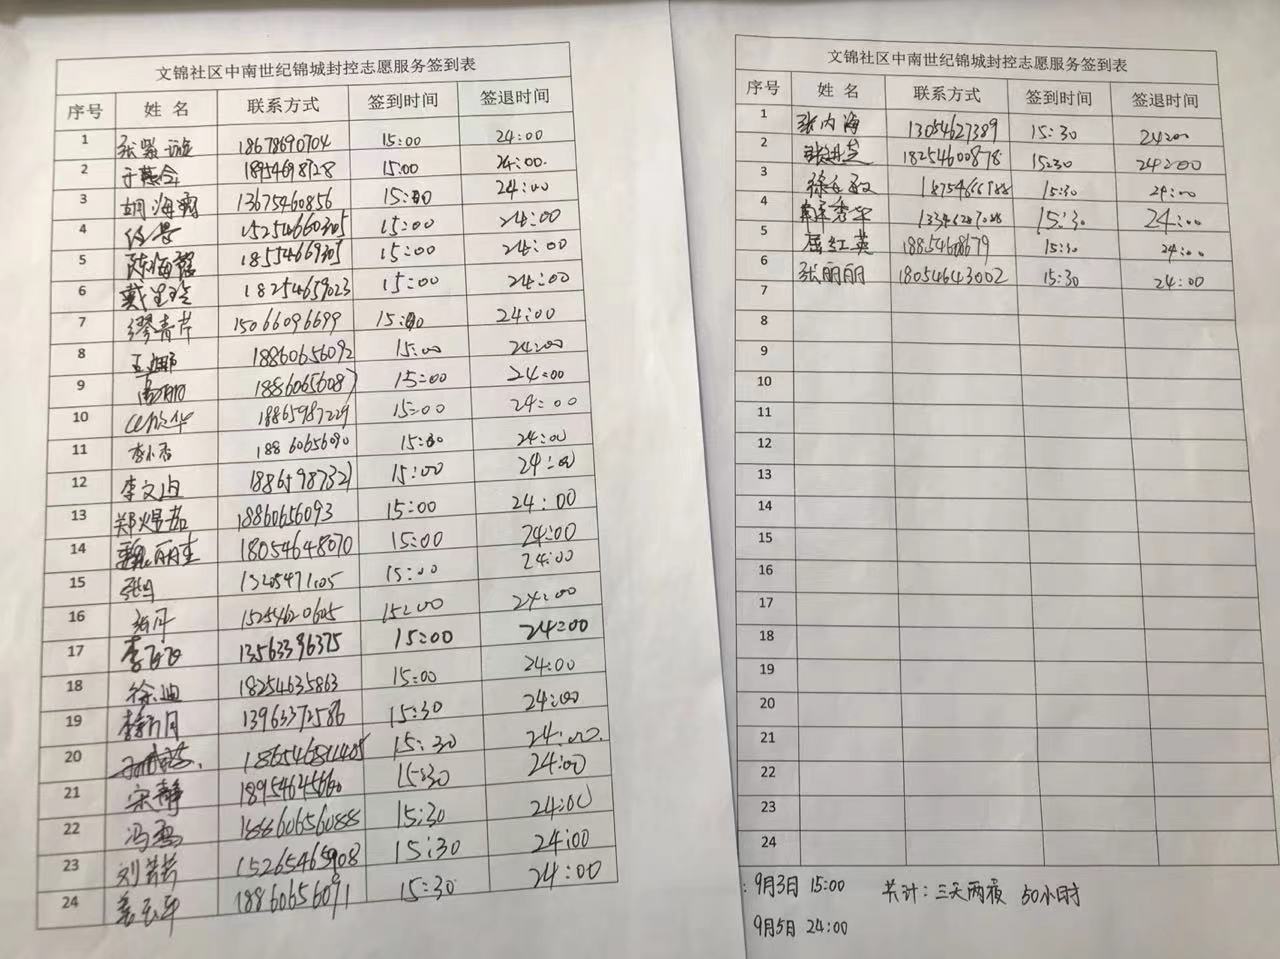 文锦社区中南世纪锦城封控志愿服务签到表
序号 姓 名 联系方式 签到时间 签退时间
1 张紫璇 18678690704 15:00 24:00
2 于慧会 18954698728 15:00 24:00
3 胡海霞 13675460856 15:00 24:00
4 任景 15:00 24:00
5 陈海铭 18554669305 15:00 24:00
6 戴 18254659023 15:00 24:00
7 缪青芹 15066096699 15:00 24:00
8 王娜 18860656092 15:00 24:00
9 丽 18860656087 15:00 24:00
10 华 18865987229 15:00 24:00
11 李小杏 18860656090 15:00 24:00
12 李文 18865987321 15:00 24:00
13 郑煜茹 18860656093 15:00 24:00
14 魏丽杰 18054648070 15:00 24:00
15 15:00 24:00
16 15254620605 15:00 24:00
17 李飞飞 13563396375 15:00 24:00
18 徐迪 18254635863 15:00 24:00
19 李新月 13963372586 15:30 24:00
20 15:30 24:00
21 宋静 15:30 24:00
22 冯雪 15:30 24:00
23 刘芳芳 15265465908 15:30 24:00
24 18860656091 15:30 24:00
文锦社区中南世纪锦城封控志愿服务签到表
序号 姓 名 联系方式 签到时间 签退时间
1 张内海 13054627389 15:30 24:00
2 18254600878 15:30 24:00
3 徐 15:30 24:00
4 秀华 15:30 24:00
5 屈红英 18854608679 15:30 24:00
6 张丽丽 18054643002 15:30 24:00
7
8
9
10
11
12
13
14
15
16
17
18
19
20
21
22
23
24
: 9月3日 15:00 共计：三天两夜 50小时
9月5日 24:00